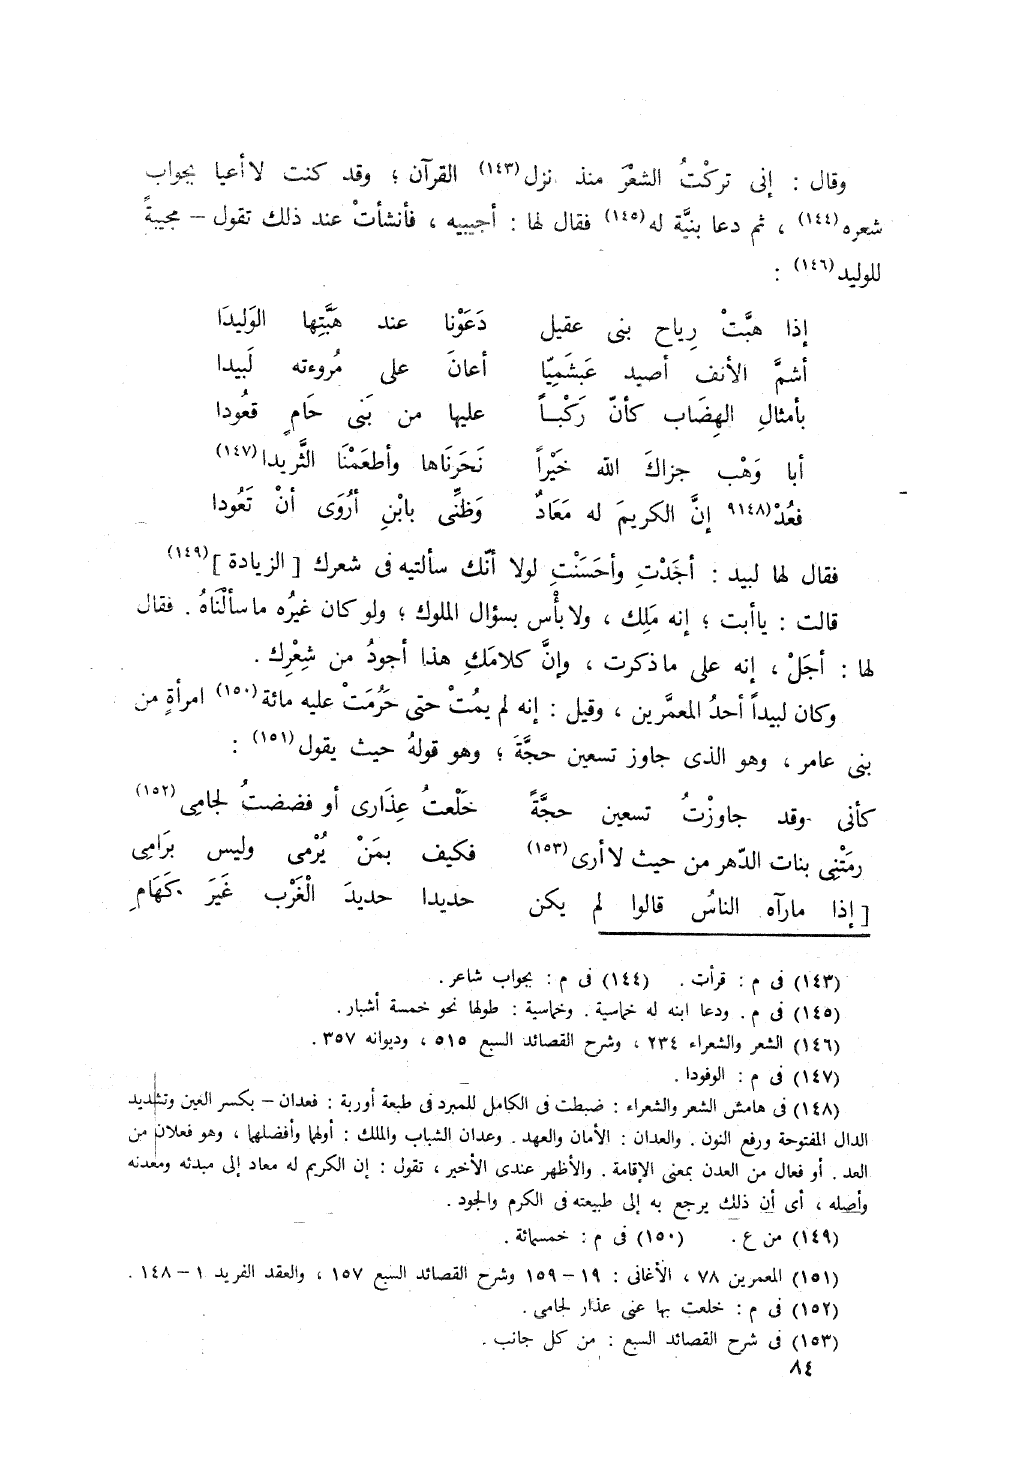 وقال : إنى تركْتُ الشعْرَ منذ نزل(١٤٣) القرآن ؛ وقد كنت لا أعيا بجواب
شعره(١٤٤) ، ثم دعا بنيَّة له(١٤٥) فقال لها : أجيبيه ، فأنشأتْ عند ذلك تقول – مجيبةً
للوليد(١٤٦) :
إذا هبَّتْ رِياح بنى عقيل دَعَوْنا عند هَبَّتِها الوَليدَا
أشمَّ الأنف أصيد عَبشَمِيّا أعانَ على مُروءته لَبيدا
بأمثالِ الهِضَاب كأنّ رَكْباً عليها من بَنى حَامٍ قعُودا
أبا وَهْب جزاكَ الله خَيْراً نَحَرنَاها وأطعَمْنَا الثَّريدا(١٤٧)
فعُدْ(١٤٨٩ إنَّ الكريمَ له مَعَادٌ وَظنِّى بابْنِ أرْوَى أنْ تَعُودا
فقال لها لبيد : أجَدْتِ وأحسَنْتِ لولا أنّك سألتيه فى شعرك [ الزيادة ](١٤٩)
قالت : ياأبت ؛ إنه مَلِك ، ولا بأْس بسؤال الملوك ؛ ولو كان غيرُه ما سألْنَاهُ . فقال
لها : أجَلْ ، إنه على ما ذكرت ، وإنَّ كلامَكِ هذا أجودُ من شِعْرِك .
وكان لبيداً أحدُ المعمَّرين ، وقيل : إنه لم يمُتْ حتى حَرُمَتْ عليه مائة(١٥٠) امرأةٍ من
بنى عامر ، وهو الذى جاوز تسعين حجَّةَ ؛ وهو قولهُ حيث يقول(١٥١) :
كأنى وقد جاوزْتُ تسعين حجَّةً خَلْعتُ عِذَارى أو فضضتُ لجامِى(١٥٢)
رمَتْنِى بنات الدّهر من حيث لا أرى(١٥٣) فكيف بمَنْ يُرْمى وليس برَامِى
[ إذا مارآه الناسُ قالوا لم يكن حديدا حديدَ الْغَرْب غَيَرَ كَهَامِ
(١٤٣) فى م : قرأت . (١٤٤) فى م : بجواب شاعر .
(١٤٥) فى م . ودعا ابنه له خماسية . وخماسية : طولها نحو خمسة أشبار .
(١٤٦) الشعر والشعراء ٢٣٤ ، وشرح القصائد السبع ٥١٥ ، وديوانه ٣٥٧ .
(١٤٧) فى م : الوفودا .
(١٤٨) فى هامش الشعر والشعراء : ضبطت فى الكامل للمبرد فى طبعة أوربة : فعدان – بكسر العين وتشديد
الدال المفتوحة ورفع النون . والعدان : الأمان والعهد . وعدان الشباب والملك : أولها وأفضلهما ، وهو فعلان من
العد . أو فعال من العدن بمعنى الإقامة . والأظهر عندى الأخير ، تقول : إن الكريم له معاد إلى مبدئه ومعدنه
وأصله ، أى أن ذلك يرجع به إلى طبيعته فى الكرم والجود .
(١٤٩) من ع . (١٥٠) فى م : خمسمائة .
(١٥١) المعمرين ٧٨ ، الأغانى : ١٩ – ١٥٩ وشرح القصائد السبع ١٥٧ ، والعقد الفريد ١ – ١٤٨ .
(١٥٢) فى م : خلعت بها عنى عذار لجامى .
(١٥٣) فى شرح القصائد السبع : من كل جانب .
٨٤